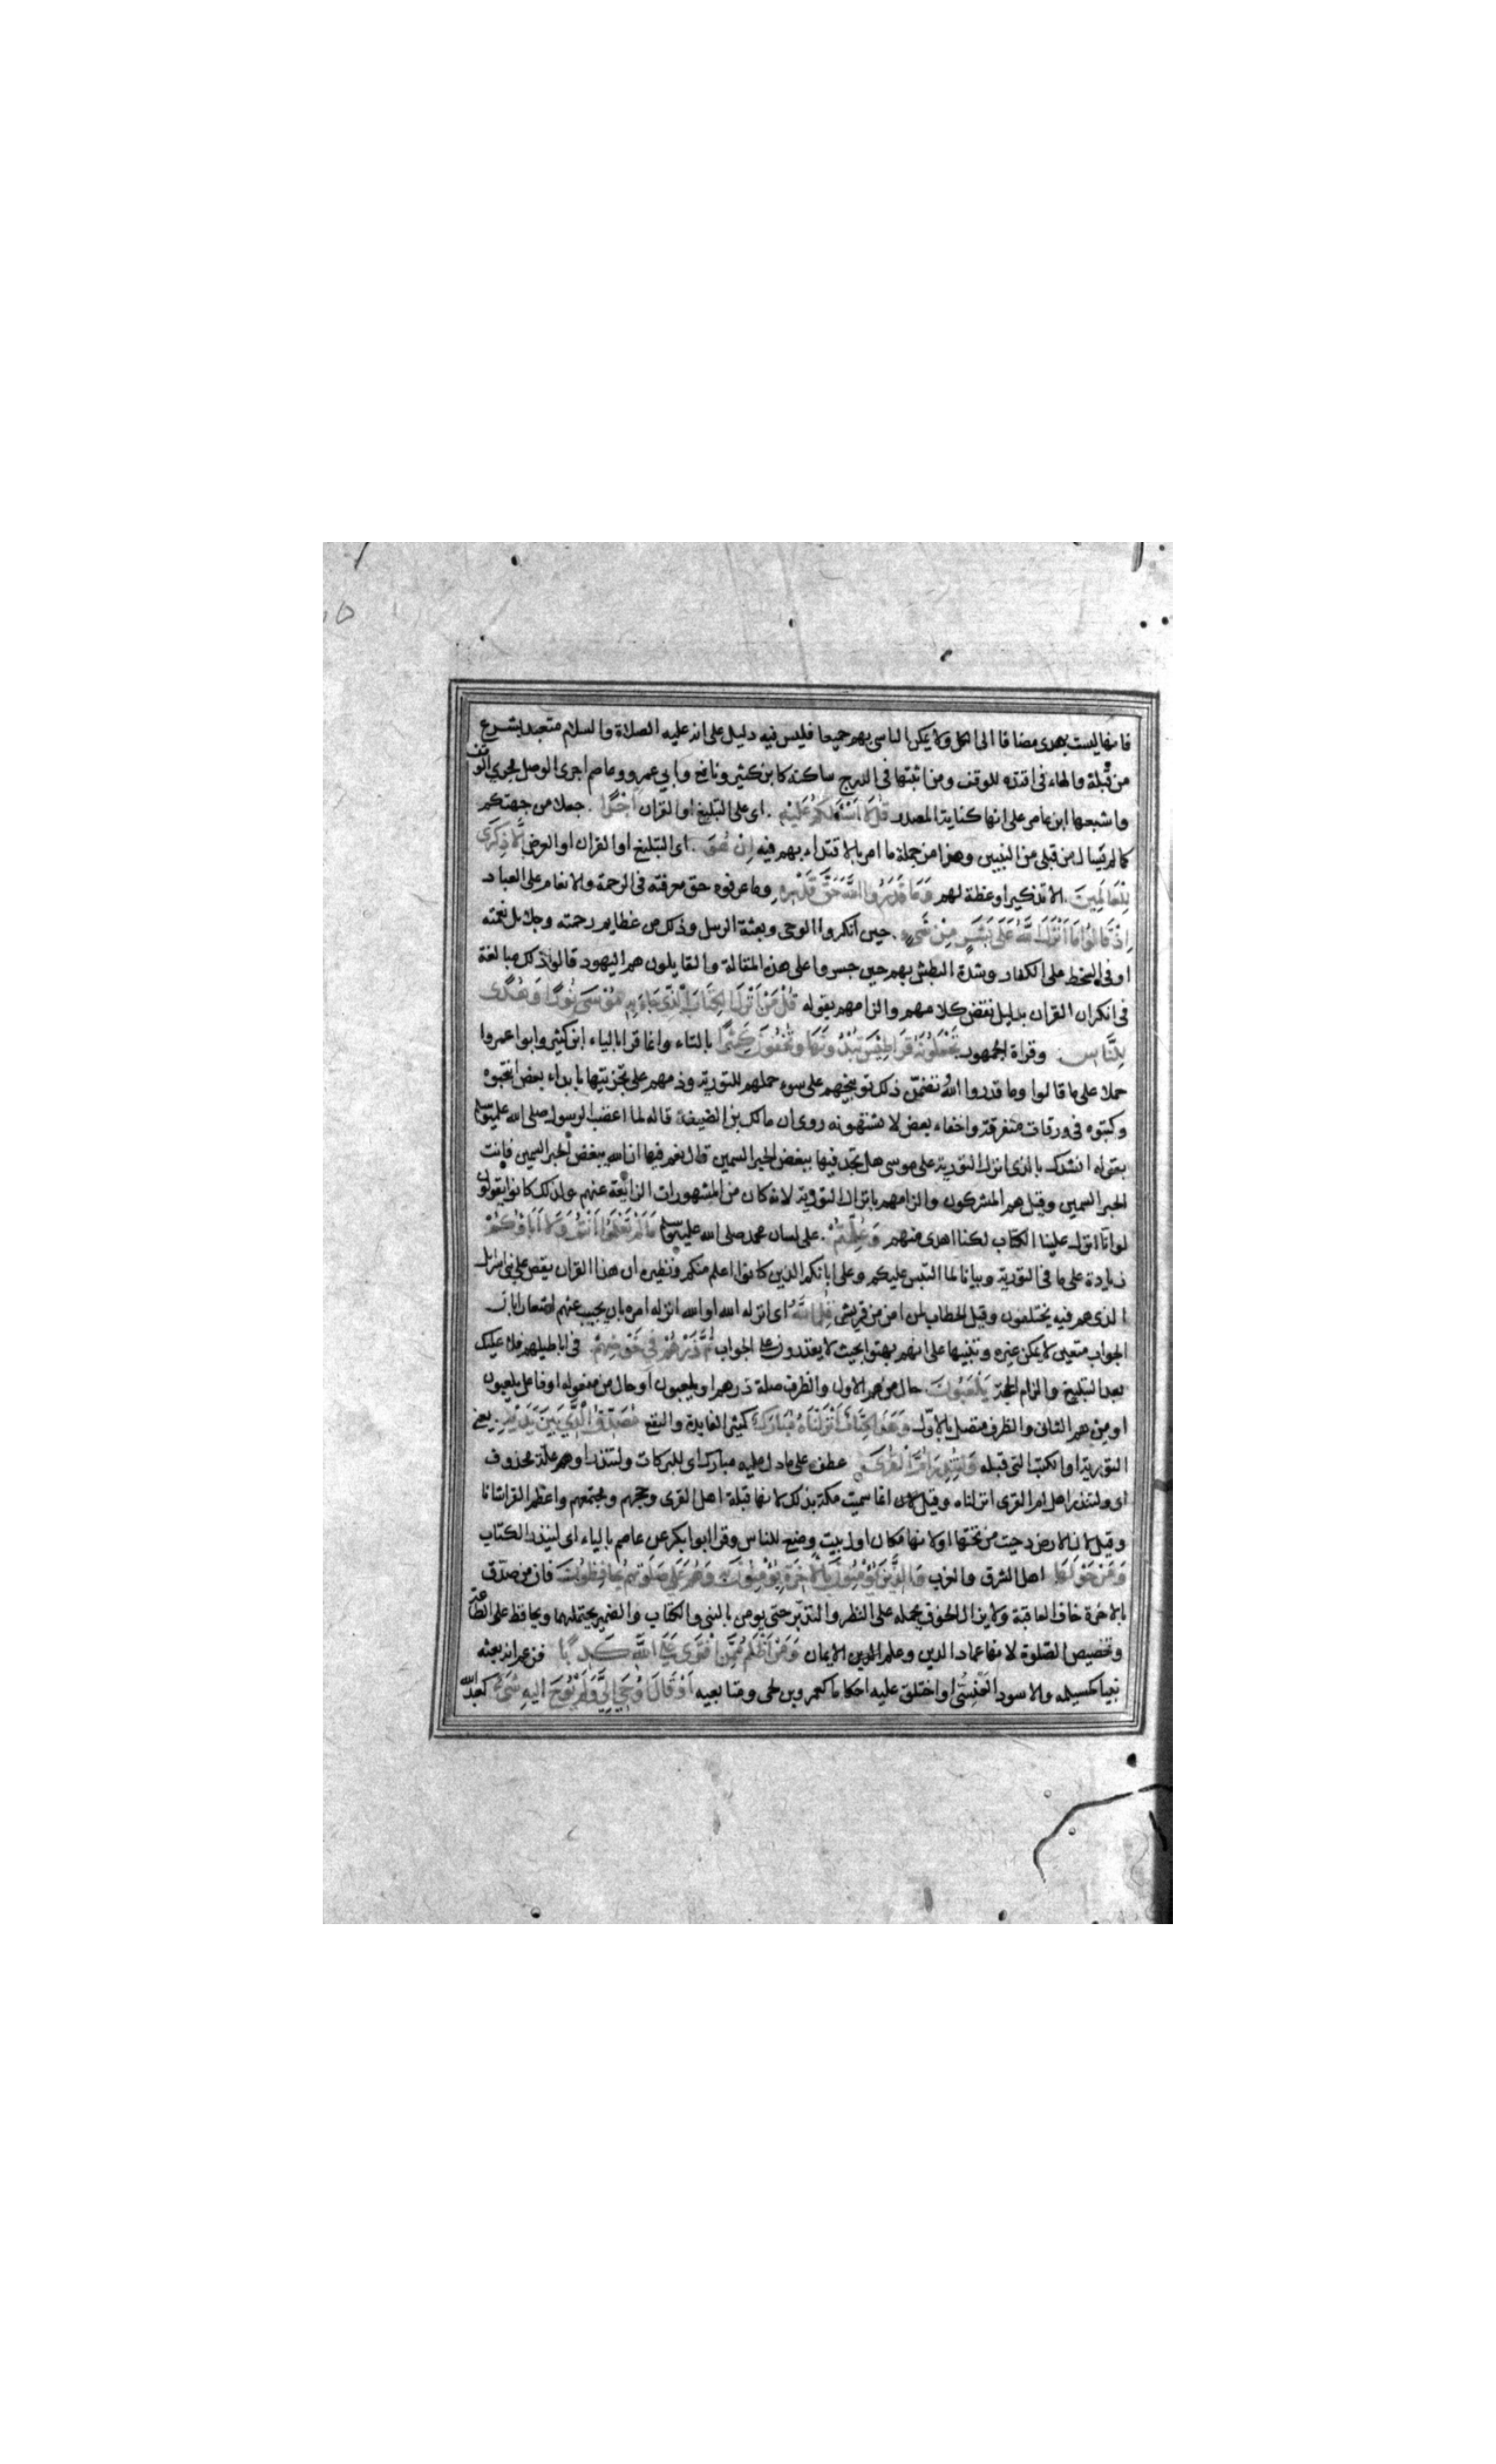 فانها ليست بهدى مضافا الى الكل ولا يمكن الناسى بهم جميعا فليس فيه دليل على انه عليه الصلاة والسلام متعبد بشرع
من قبلة والهاء فى اقتده للوقف ومن اثبتها فى الدرج ساكنة كابن كثير ونافع وابي عمرو وعاصم اجرى الوصل مجرى الوقف
واشبعها ابن عامر على انها كناية المصدر قُل لَا اَسْئَلُكُمْ عَلَيْهِ . اى على التبليغ او القران اَجْرًا . جعلا من جهتكم
كما لم يسال من قبلى من النبيين وهذا من جملة ما امر بالاقتداء بهم فيه اِنْ هُوَ . اى التبليغ او القران او الغرض اِلَّا ذِكْرَى
لِلْعَالَمِينَ . الا تذكيرا وعظة لهم وَمَا قَدَرُوا اللَّهَ حَقَّ قَدْرِهِ وما عرفوه حق معرفته فى الرحمة والانعام على العباد
اِذْ قَالُوا مَا اَنْزَلَ اللَّهُ عَلَى بَشَرٍ مِنْ شَىْءٍ . حين انكروا الوحى وبعثة الرسل وذلك من عظايم رحمته وجلائل نعمته
او فى السخط على الكفار وشدة البطش بهم حين جسروا على هذه المقالة والقايلون هم اليهود قالوا ذلك مبالغة
فى انكران القران بدليل نقض كلامهم والزامهم بقوله قُلْ مَنْ اَنْزَلَ الْكِتَابَ الَّذِى جَاءَ بِهِ مُوْسَى نُورًا وَهُدًى
لِلنَّاسِ . وقراة الجمهور تَجْعَلُونَهُ قَرَاطِيْسَ تُبْدُونَهَا وَتُخْفُونَ كَثِيْرًا بالتاء وانما قرا بالياء ابن كثير وابوا عمروا
حملا على ما قالوا وما قدروا اللهُ تضمّن ذلك توبيخهم على سوء حملهم للتورية وذمهم على تجزيتها بابداء بعض انتخبوه
وكتبوه فى ورقات متفرقة واخفاء بعض لا يشتهونه روى ان مالك بن الضيف قاله لما اغضب الرسول صلى الله عليه وسلم
بقوله انشدك بالذى انزل التورية على موسى هل تجد فيها يبغض الحبر السمين قال نعم فيها ان الله يبغض الحبر السمين فانت
الحبر السمين وقيل هم المشركون والزامهم بانزال التورية لانه كان من المشهورات الذايعة عنهم ولذلك كانوا يقولون
لو انا انزل علينا الكتاب لكنا اهدى منهم وَعُلِّمْتُمْ . على لسان محمد صلى الله عليه وسلم مَا لَمْ تَعْلَمُوا اَنْتُمْ وَلَا اَبَاؤُكُمْ
زيادة على ما فى التورية وبيانا لما التبس عليكم وعلى ابائكم الذين كانوا اعلم منكم ونظيره ان هذا القران يقص على بنى اسرائيل
الذى هم فيه يختلفون وقيل الخطاب لمن امن من قريش قُلِ اللَّهُ اى انزله الله او الله انزله امره بان يجيب عنهم اشعارا بان
الجواب متعين لا يمكن غيره وتنبيها على انهم بهتوا بحيث لا يقدرون على الجواب ثُمَّ ذَرْهُمْ فِى خَوْضِهِمْ . فى اباطيلهم فلا عليك
بعد التبليغ والزام الحجة يَلْعَبُونَ حال من هم الاول والظرف صلة ذرهم او يلعبون او حال من مفعوله او فاعل يلعبون
او من هم الثانى والظرف متصل بالاول وَهَذَا كِتَابٌ اَنْزَلْنَاهُ مُبَارَكٌ كثير الفايدة والنفع مُصَدِّقُ الَّذِى بَيْنَ يَدَيْهِ . يعنى
التورية او الكتب التى قبله وَلِتُنْذِرَ اُمَّ الْقُرَى عطف على ما دل عليه مبارك اى للبركات ولتنذر او هم علة محذوف
اى ولتنذر اهل ام القرى انزلناه وقيل لان انما سميت مكة بذلك لانها قبلة اهل القرى وحجهم ومجتمعهم واعظم القرا شانا
وقيل لان الارض دحيت من تحتها او لانها مكان اول بيت وضع للناس وقرا ابوا بكر عن عاصم بالياء اى لينذر الكتاب
وَمَنْ حَوْلَهَا اهل الشرق والغرب وَالَّذِينَ يُؤْمِنُونَ بِالْاَخِرَةِ يُؤْمِنُونَ بِهِ وَهُمْ عَلَى صَلَوتِهِمْ يُحَافِظُونَ فان من صدّق
بالاخرة خاف العاقبة ولا يزال الخوف يحمله على النظر والتدبّر حتى يومن بالنبى والكتاب والضمير يحتملهما ويحافظ على الطاعة
وتخصيص الصّلوة لانها عماد الدين وعلم الدين الايمان وَمَنْ اَظْلَمُ مِمَّنِ افْتَرَى عَلَى اللَّهِ كَذِبًا فزعم انه بعثه
نبيا كمسيلمه والاسود العَنْسِىّ او اختلق عليه احكاما كعمرو بن لحى ومتابعيه اَوْ قَالَ اُوْحِىَ اِلَىَّ وَلَمْ يُوْحَ اِلَيْهِ شَىْءٌ كعبد الله